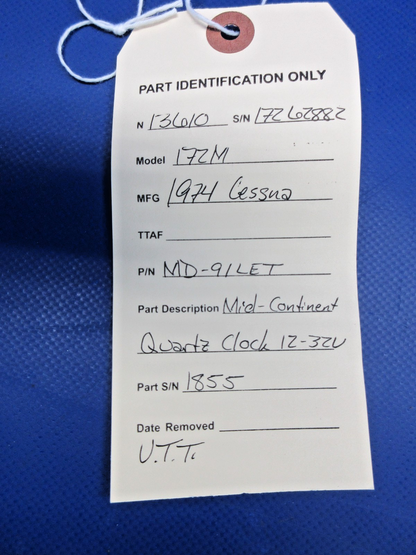 PART IDENTIFICATION ONLY
N 13610 S/N 17262882
Model 172M
MFG 1974 Cessna
TTAF
P/N MD-91LET
Part Description Mid-Continent
Quartz Clock 12-32V
Part S/N 1855
Date Removed
U.T.T.